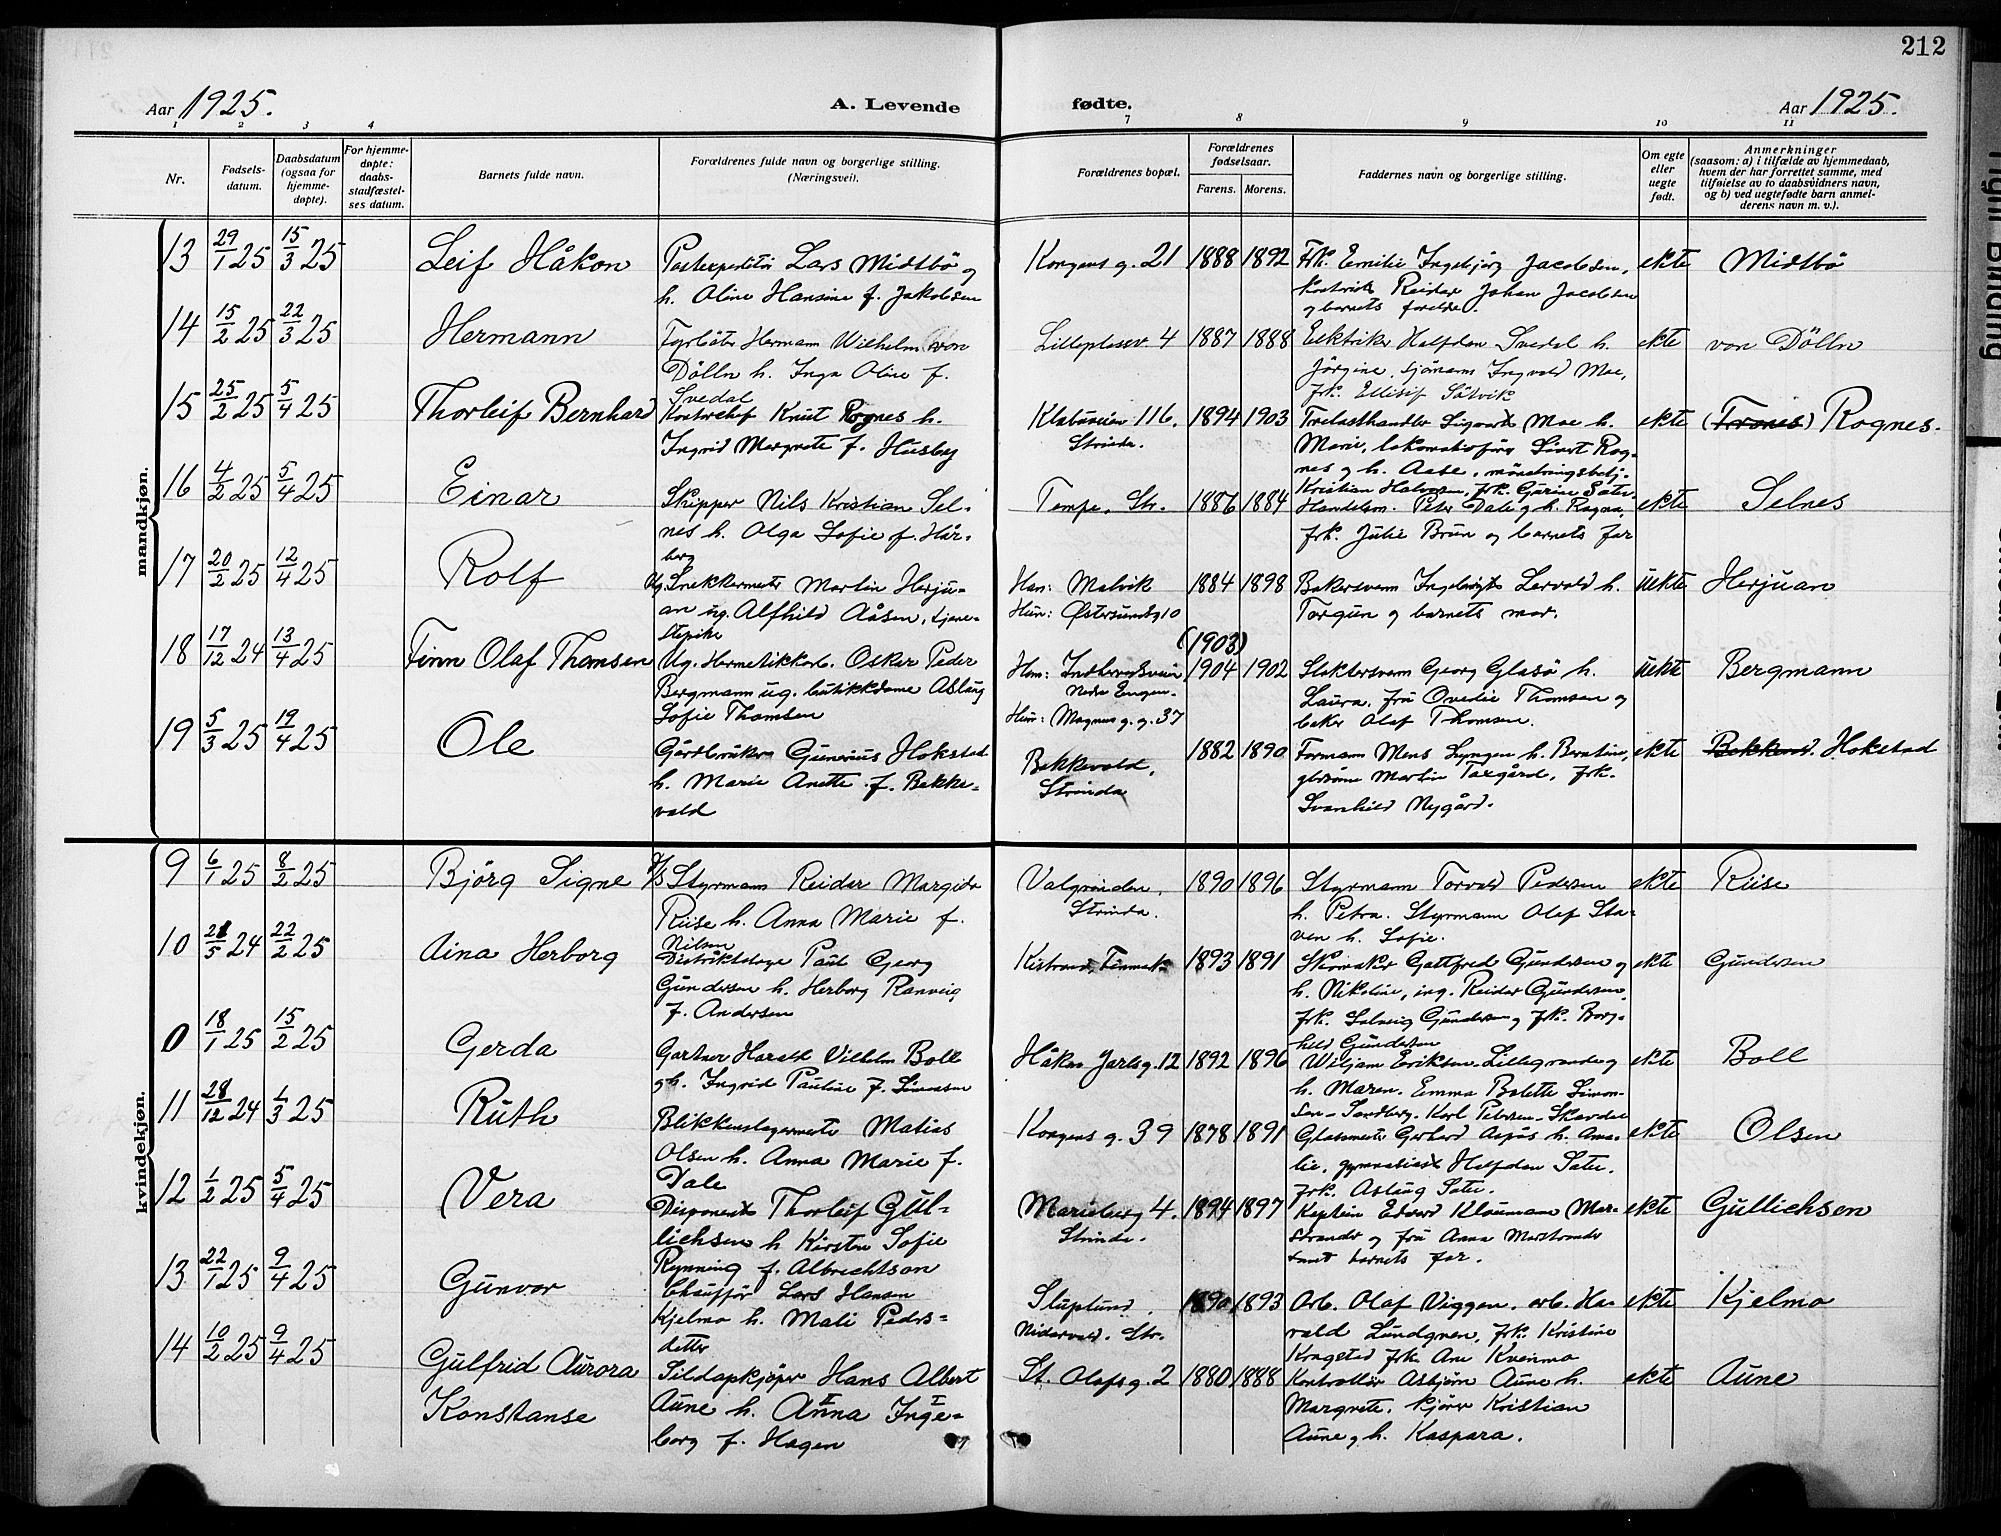 212
Aar 1925.
A. Levende fødte.
Aar 1925.
1 2 3 4 7 8 9 10 11
Nr.
Fødselsdatum.
Daabsdatum
(ogsaa for
hjemmedøpte).
For hjemmedøpte:
daabsstadfæstelses datum.
Barnets fulde navn.
Forældrenes fulde navn og borgerlige stilling.
(Næringsvei).
Forældrenes bopæl.
Forældrenes
fødselsaar.
Farens. Morens.
Faddernes navn og borgerlige stilling.
Om egte
eller
uegte
født.
Anmerkninger
(saasom: a) i tilfælde av hjemmedaab,
hvem der har forrettet samme, med
tilføielse av to daabsvidners navn,
og b) ved uegtefødte barn anmelderens navn m. v.).
mandkjøn.
13 29/1 25 15/3 25 Leif Håkon
Postexpeditør Lars Midtbö og
h. Oline Hansine f. Jakobsen
Kongens g. 21 1888 1892
Frk. Emilie Ingebjørg Jacobsen,
Reidar Johan Jacobsen
og barnets foreldre.
ekte Midtbö
14 15/2 25 22/3 25 Hermann
Fyrböter Hermann Wilhelm von
Dölln h. Inga Oline f.
Svedal
4 1887 1888
Elektriker Halfdan Svedal h.
Jörgine, sjömann Ingvald Moe,
frk. Ellisif Såtvik
ekte von Dölln
15 25/2 25 5/4 25 Thorleif Bernhard
Kontorchef Knut Rognes h.
Ingrid Margrete f. Husby
116. Strinda. 1894 1903
Trelasthandler Sigvart Moe h.
Marie, lokomotivförer Sivert Rognes
og h. Aase,
Kristian Halvorsen, frk. Gurine Sater
ekte (Tranes) Rognes.
16 4/2 25 5/4 25 Einar
Skipper Nils Kristian Selnes
h. Olga Sofie f. Hårberg
Tempe, Str. 1886 1884
Handelsm. Peter Dale og h. Ragna,
frk. Julie Brun og barnets far
ekte Selnes
17 20/2 25 12/4 25 Rolf
Ug. Snekkermester Martin Herjuan
ug. Alfhild Aåsen, tjenestepike
Han: Malvik
Hun: Østersundsg 10
1884 1898
Bakersvenn Ingebrigt Lervold h.
Torgun og barnets mor.
uekte Herjuan
18 17/12 24 13/4 25 Finn Olaf Thomsen
Ug. Hermetikkarb. Oskar Peder
Bergmann ug. butikkdame Aslaug
Sofie Thomsen
Han: Indherredsveien
Nedre Engen.
Hun: Magnus g. g. 37
(1903)
1904 1902
Slaktersvenn Georg Glasö h.
Laura, fru Ovedie Thomsen og
baker Olaf Thomsen.
uekte Bergmann
19 5/3 25 19/4 25 Ole
Gårdbruker Gunerius Hokstad
h. Marie Anette f. Bekkevold
Bekkevold,
Strinda
1882 1890
Formann Mons Lyngen h. Berntine,
Martin Taxgård, frk.
Svanhild Nygård.
ekte Hokstad
kvindekjøn.
9 6/1 25 8/2 25 Björg Signe
Styrmann Reidar Margido
Riise h. Anna Marie f.
Nilsen
Valgrinden,
Strinda.
1890 1896
Styrmann Torvald Pedersen
h. Petra. Styrmann Olaf Staven
h. Sofie.
ekte Riise
10 21/5 24 22/2 25 Aina Herborg
Distriktslæge Paul Georg
Gundersen h. Herborg Ranveig
f. Andersen
Kistrand, Finnmark 1893 1891
Skomaker Gottfred Gundersen og
h. Nikoline, ing. Reidar Gundersen,
frk. Solveig Gundersen og frk. Borghild
Gundersen
ekte Gundersen
0 18/1 25 15/2 25 Gerda
Gartner Harald Vilhelm Boll
og h. Ingrid Pauline f. Simonsen
Håkon Jarls g. 12 1892 1896
Wiljam Eriksen - Lillegrande og
h. Maren. Emma Bolette Simonsen
- Sandberg. Karl Petersen -
ekte Boll
11 28/12 24 1/3 25 Ruth
Blikkenslagermester Matias
Olsen h. Anna Marie f.
Dale
Kongens g. 39 1878 1891
Glassmester Gerhard Aspås h. Amalie,
gymnasiast Halfdan Sater,
frk. Aslaug Sater.
ekte Olsen
12 1/2 25 5/4 25 Vera
Disponent Thorleif Gullichsen
h Kirsten Sofie
Rynning f. Albrechtson
Marieberg 4.
Strinda.
1894 1897
Kaptein Edvard Klaumann Marstrander
og fru Anna Marstrander
samt barnets far.
ekte Gullichsen
13 22/1 25 9/4 25 Gunvor
Chauffør Lars Hansen
Kjelmo h. Mali Pedersdatter
Sluplund,
Nidarvold. Str.
1890 1893
Arb. Olaf Viggen, arb. Harvald
Lundgren, frk. Kristine
Krogstad frk. Ane Kvenmo
ekte Kjelmo
14 10/2 25 9/4 25 Gulfrid Aurora
Konstanse
Sildopkjöper Hans Albert
Aune h. Anna Ingeborg
f. Hagen
St. Olafs g. 2 1880 1888
Kontrollör Asbjörn Aune h.
Margrete, kjörer Kristian
Aune og h. Kaspara.
ekte Aune